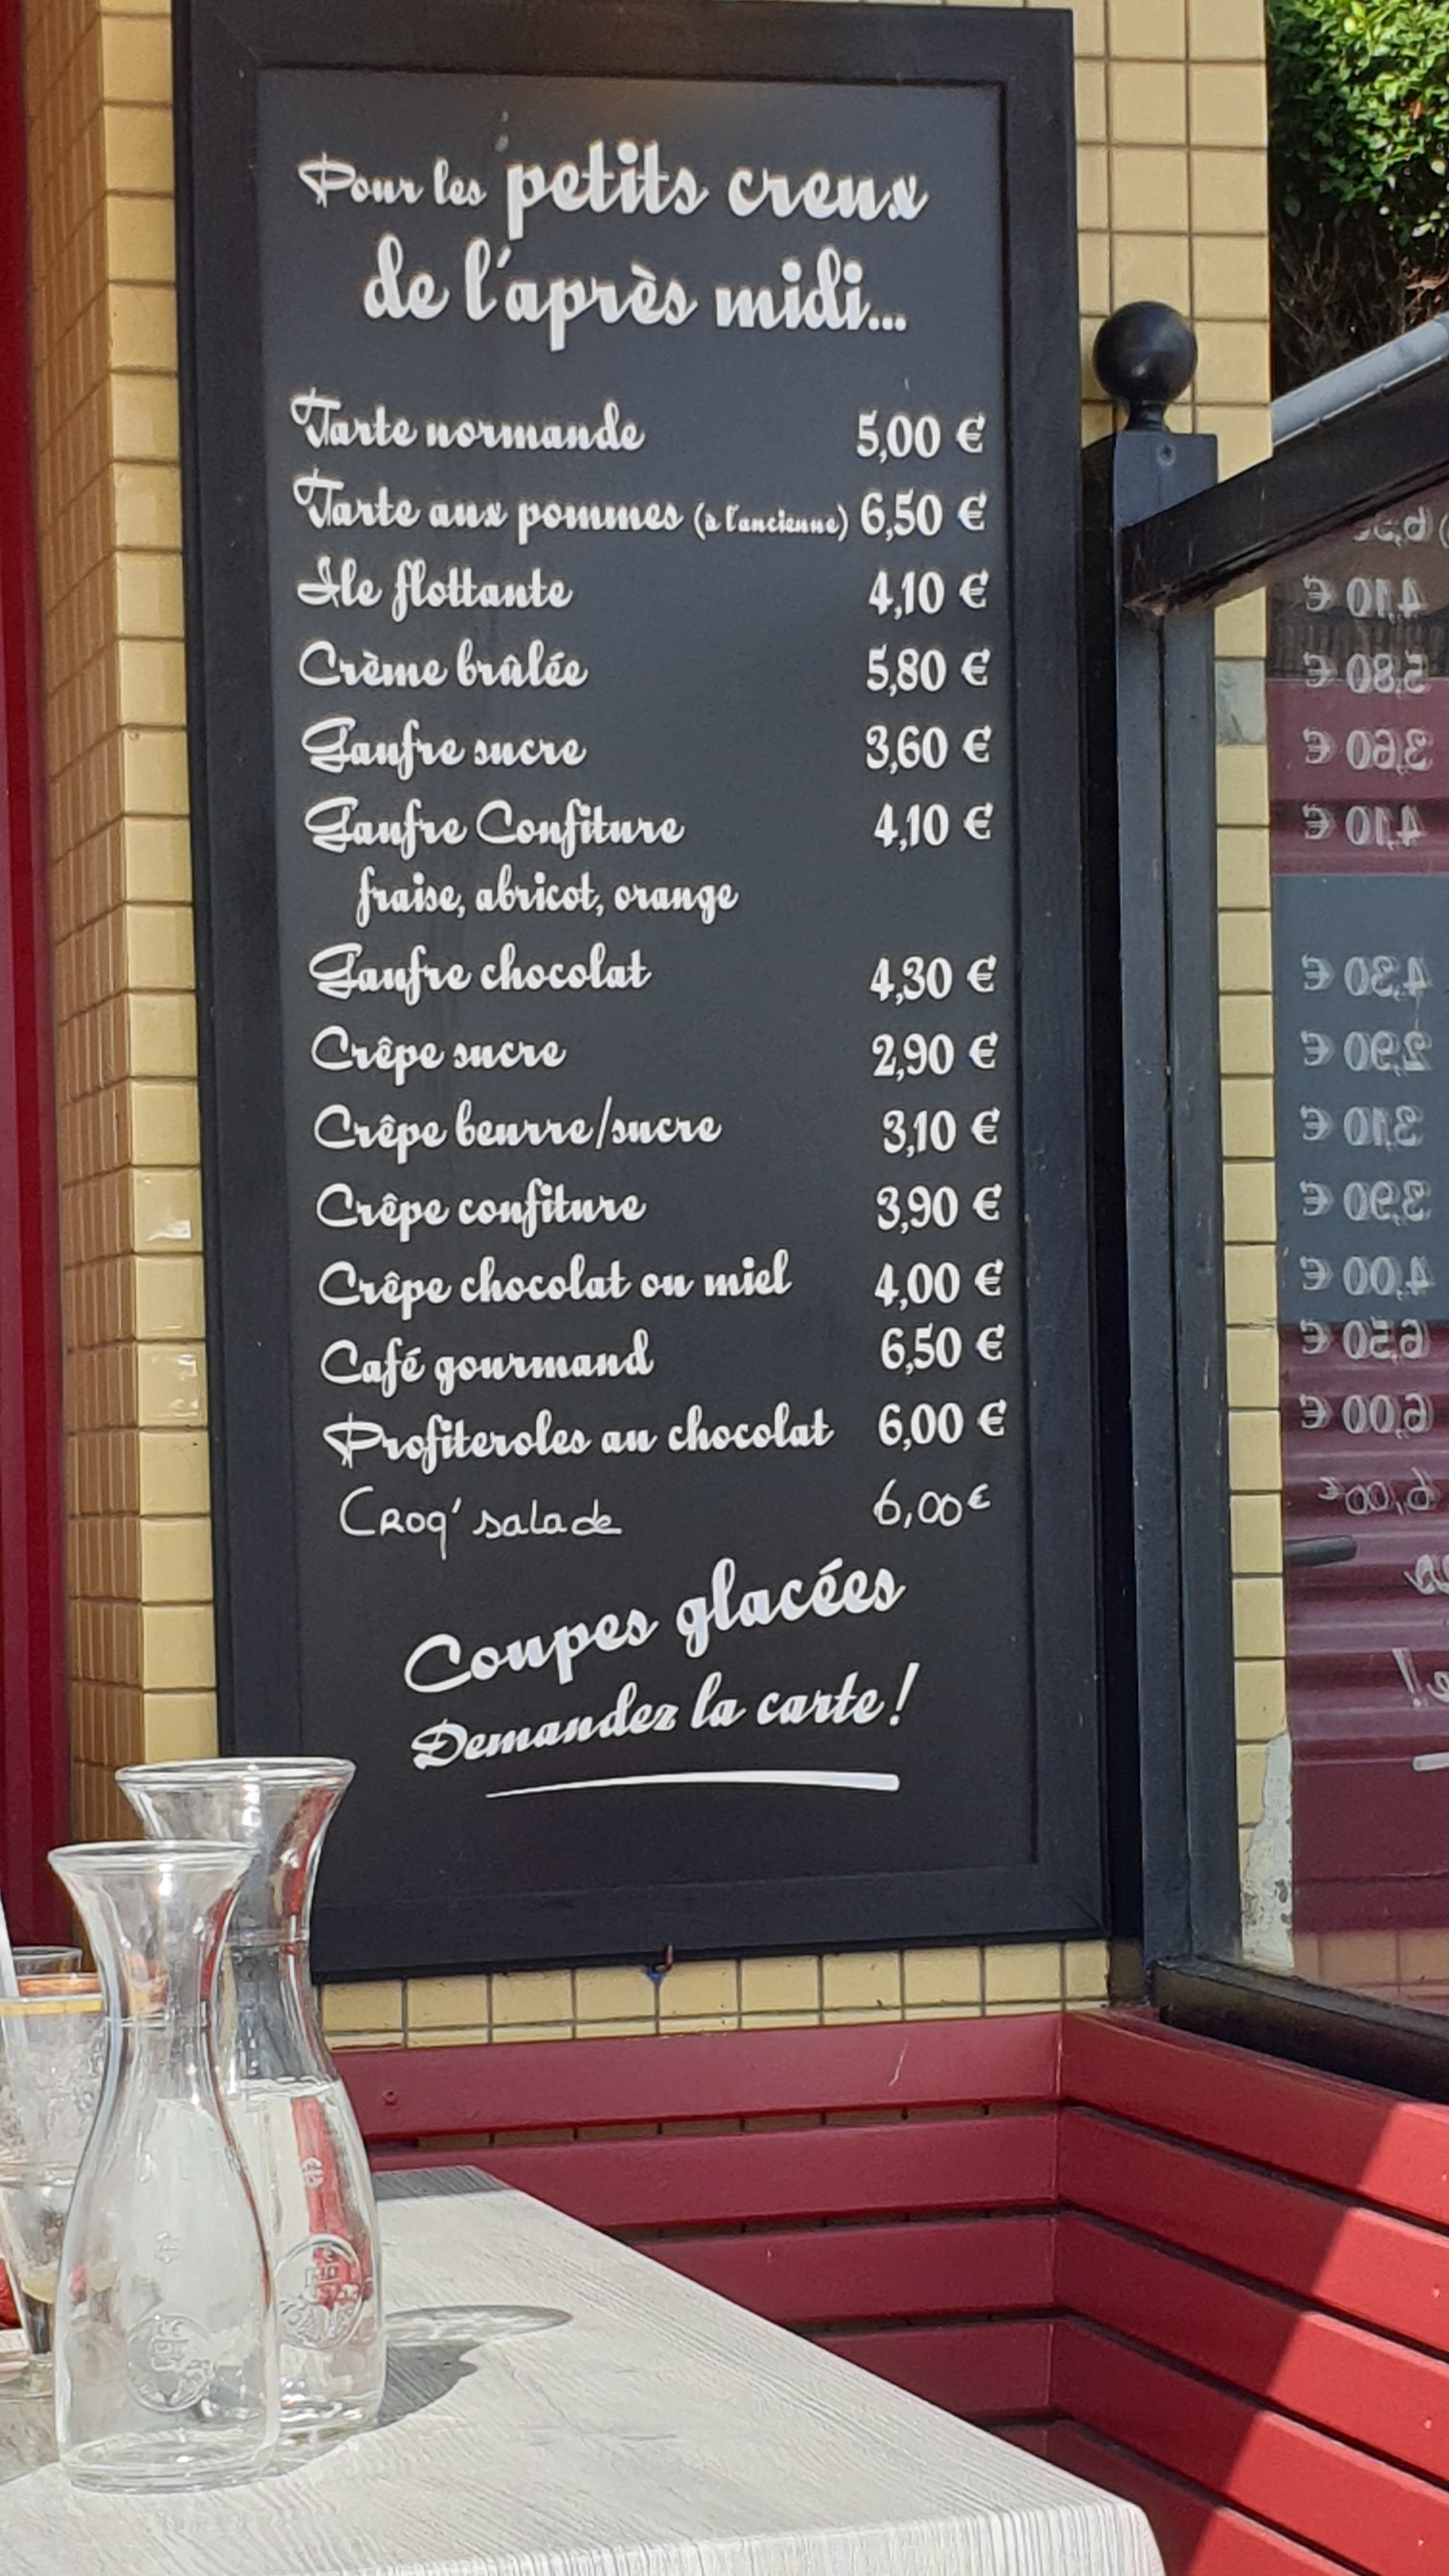 Pour les petits creux
de l'après midi...
Tarte normande 5,00 €
Tarte aux pommes (à l'ancienne) 6,50 €
Ile flottante 4,10 €
Crème brûlée 5,80 €
Gaufre sucre 3,60 €
Gaufre Confiture 4,10 €
fraise, abricot, orange
Gaufre chocolat 4,30 €
Crêpe sucre 2,90 €
Crêpe beurre/sucre 3,10 €
Crêpe confiture 3,90 €
Crêpe chocolat ou miel 4,00 €
Café gourmand 6,50 €
Profiteroles au chocolat 6,00 €
Croq' salade 6,00€
Coupes glacées
Demandez la carte !